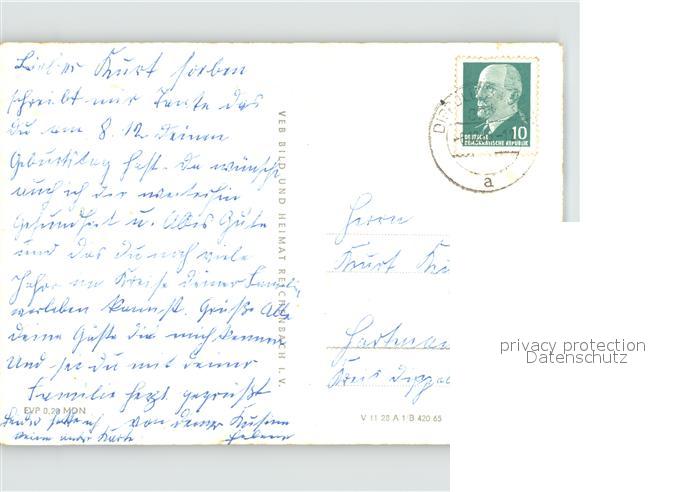 Lieber Kurt soeben
schreibt mir Tante das
Du am 8.12. Deinen
Geburtstag hast. Da wünsche
auch ich dir weiterhin
Gesundheit u. Alles Gute
und das Du noch viele
Jahre im Kreise deiner Familie
verleben kannst. Grüße Alle
deine Gäste die mich kennen
Und sei du mit deiner
Familie herzl. gegrüßt
von deiner Kusine
Leider hatte ich
keine andere Karte
VEB BILD UND HEIMAT REICHENBACH I. V.
EVP 0,20 MDN
V 11 28 A 1 B 420 65
10
DEUTSCHE
DEMOKRATISCHE REPUBLIK
a
Herrn
Kurt
Kreis Dippo
privacy protection
Datenschutz